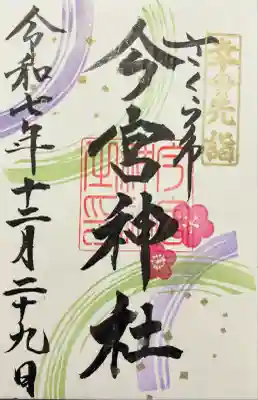 さくら市
今宮神社
令和七年十二月二十九日